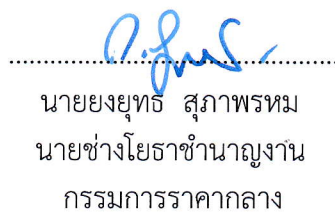 นายยงยุทธ สุภาพรหม
นายช่างโยธาชำนาญงาน
กรรมการราคากลาง